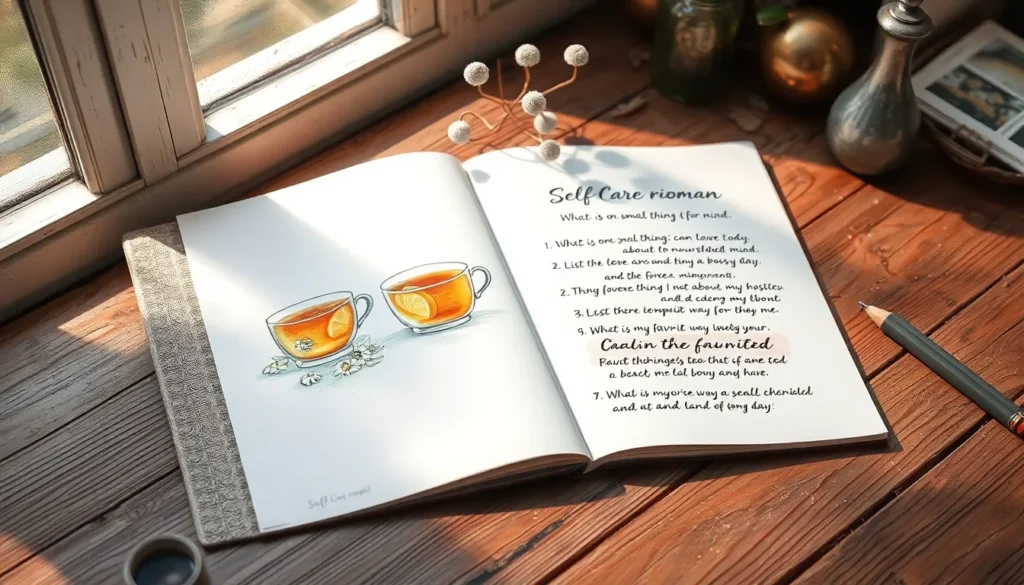 Self Care rioman
What is on small thing I for mind.
1. What is one snal thing: can love tody,
about to nourished mind.
2. List the love ans and tiny a bossy day,
and the forcea
2. Thny foverc thing I not about my hostles
and d cdcing my tbont
3. Lest there tempsit way for they me.
9. What is my favrit way webly your.
Caalin the faunited
Paust thchinges tea that if ane tod
a beact me lal bouy and have.
7. What is myorce way a seall cherichld
and at and land of tong day:
Self Care